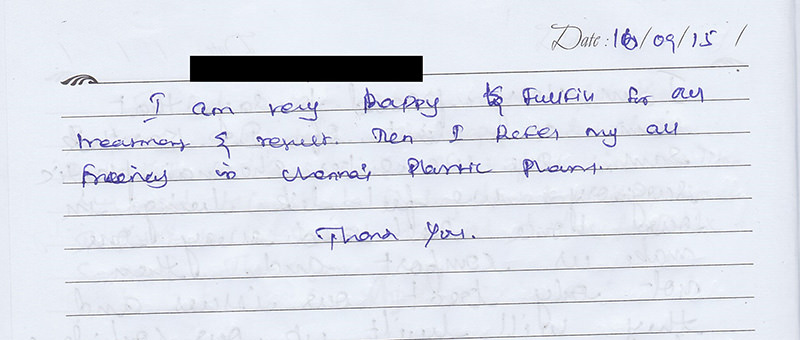 Date: 16/09/15 /
I am very happy & Fullfill for all
treatment & result. Then I Refer my all
Friends in chennai Plastic
Thank You.